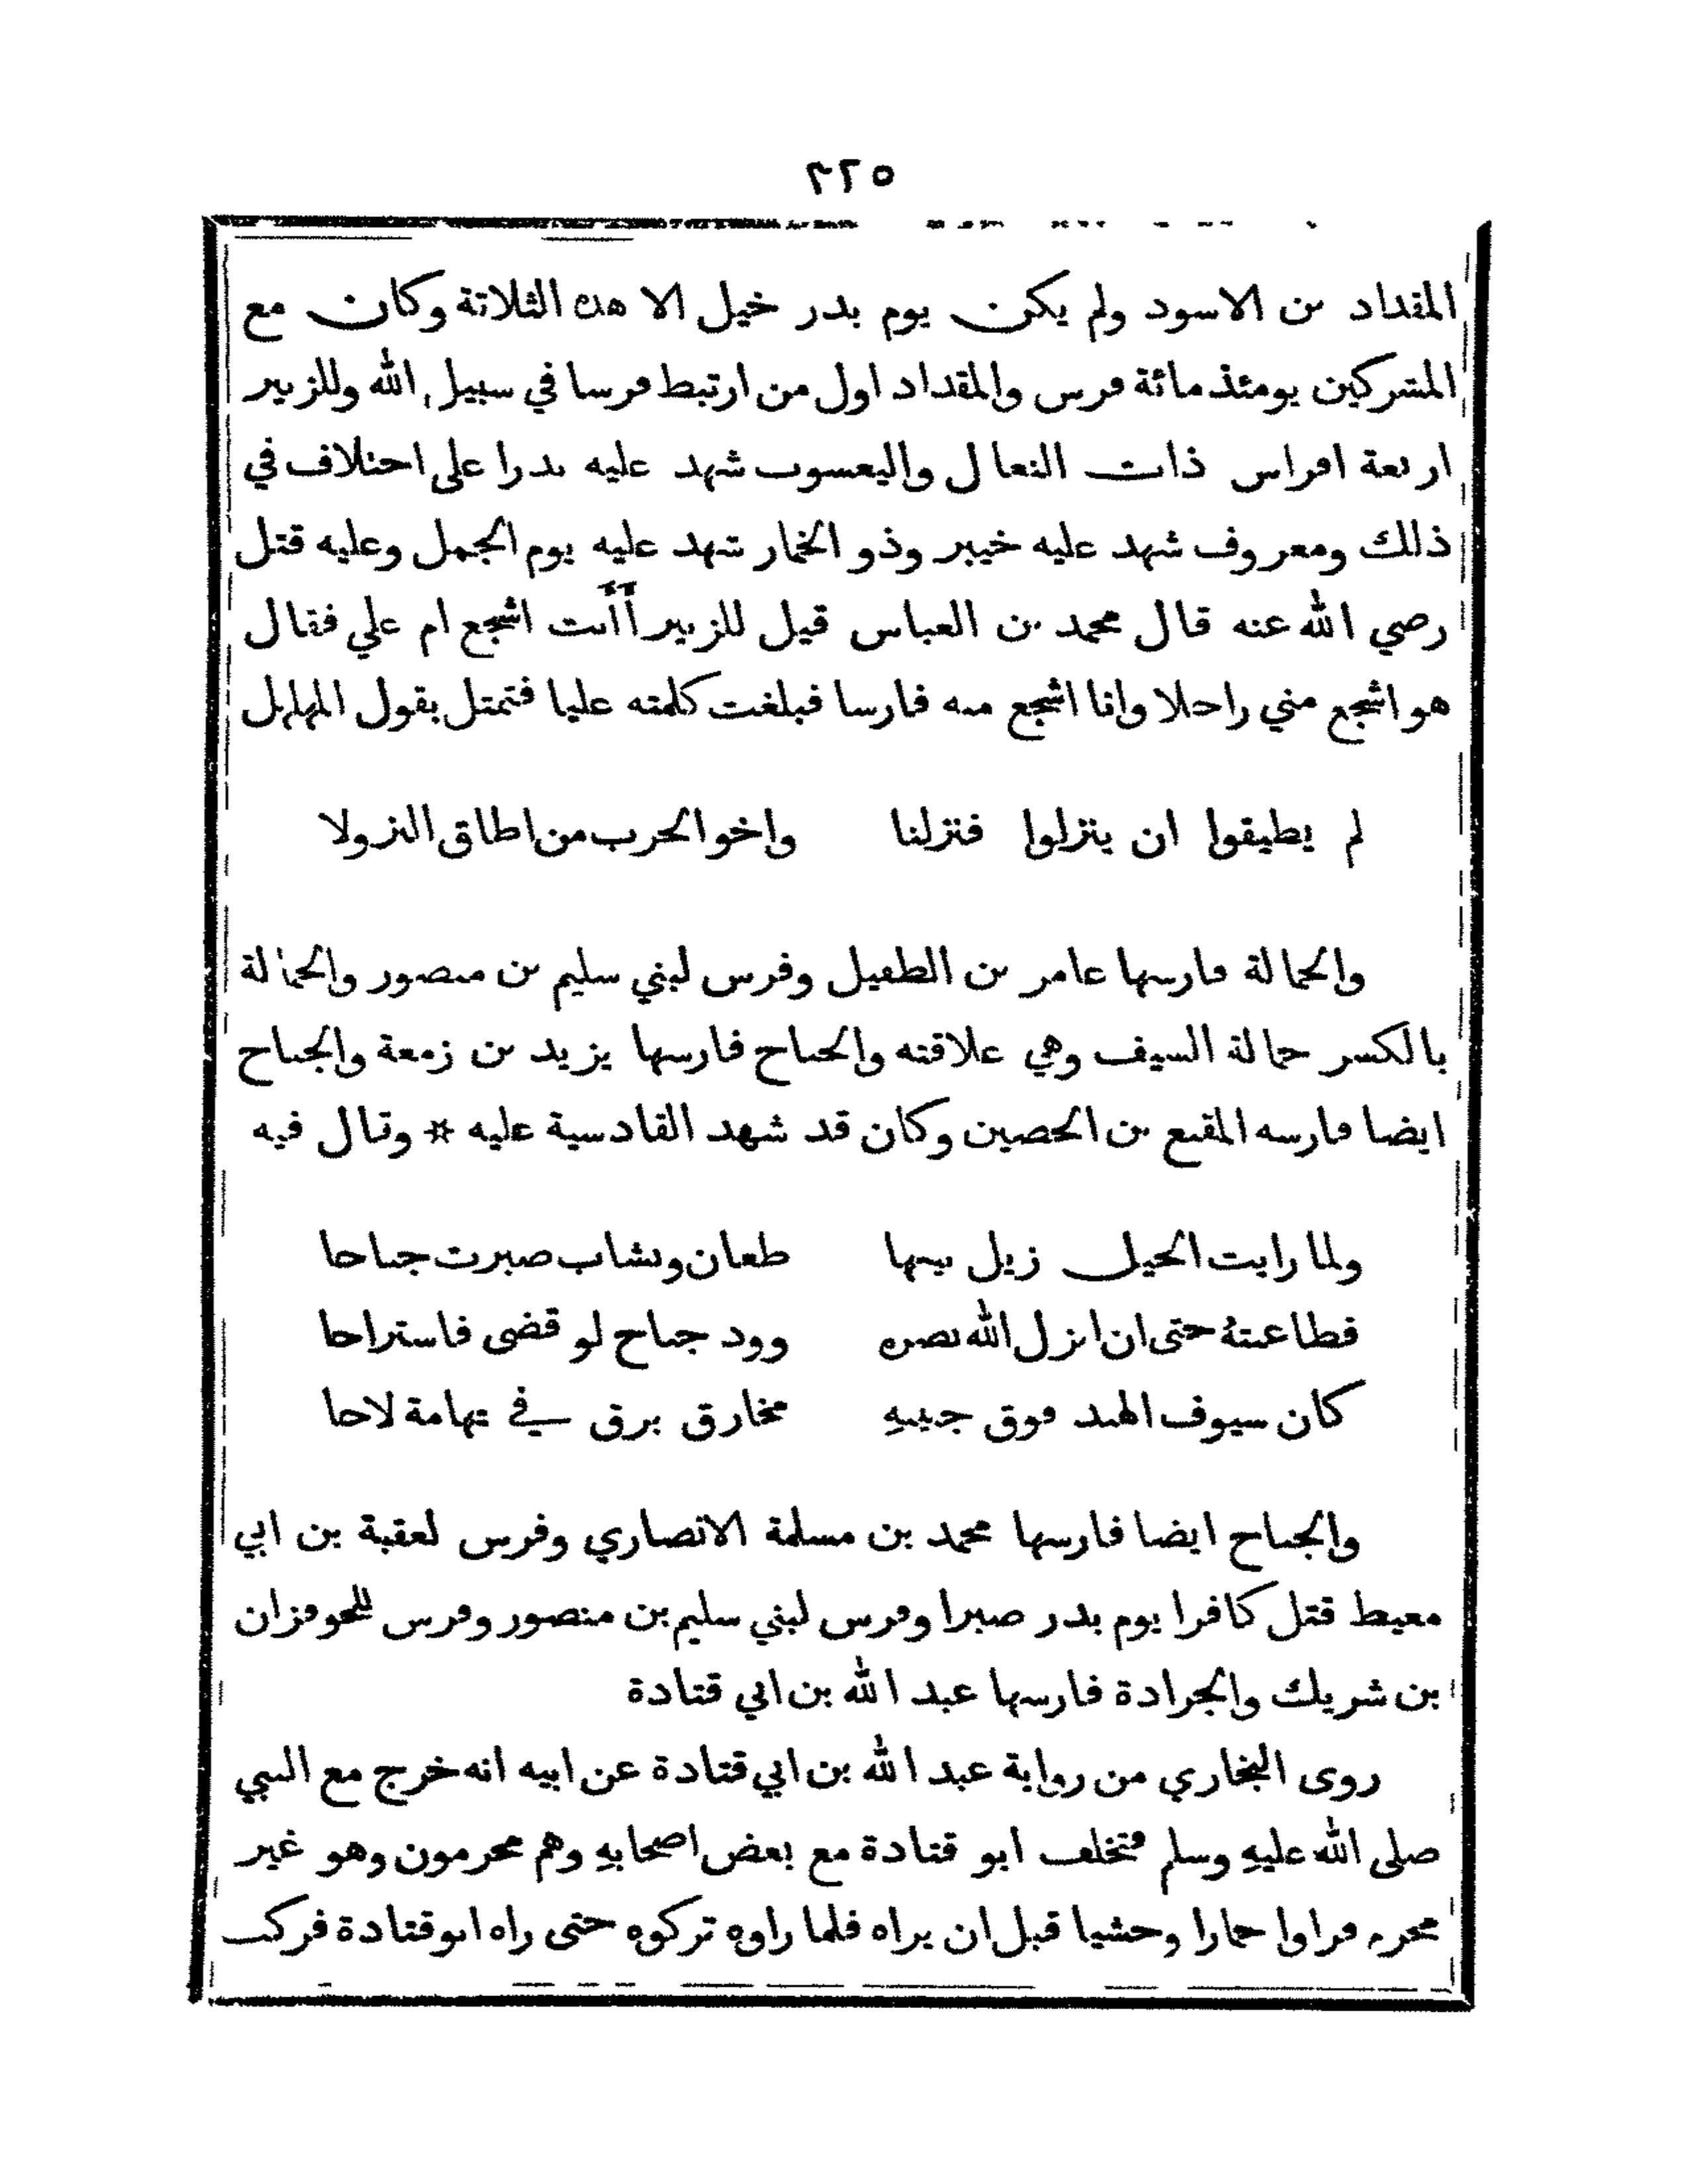 ٣٢٥
المقداد بن الاسود ولم يكن يوم بدر خيل الا هذه الثلاثة وكان مع
المشركين يومئذ مائة فرس والمقداد اول من ارتبط فرسا في سبيل الله وللزبير
اربعة افراس ذات النعال واليعسوب شهد عليه بدرا على اختلاف في
ذلك ومعروف شهد عليه خيبر وذو الخمار شهد عليه يوم الجمل وعليه قتل
رضي الله عنه قال محمد بن العباس قيل للزبير أأنت اشجع ام علي فقال
هو اشجع مني راجلا وانا اشجع منه فارسا فبلغت كلمته عليا فتمثل بقول المهلهل
لم يطيقوا ان ينزلوا فنزلنا واخو الحرب من اطاق النزولا
والحمالة فارسها عامر بن الطفيل وفرس لبني سليم بن منصور والحمالة
بالكسر حمالة السيف وهي علاقته والجناح فارسها يزيد بن زمعة والجناح
ايضا فارسه المقنع بن الحصين وكان قد شهد القادسية عليه * وقال فيه
ولما رايت الخيل زيل بينها طعان ونشاب صبرت جناحا
فطاعنتهُ حتى ان انزل الله نصره وود جناح لو قضى فاستراحا
كان سيوف الهند فوق جبينهِ مخارق برق في تهامة لاحا
والجناح ايضا فارسها محمد بن مسلمة الانصاري وفرس لعقبة بن ابي
معيط قتل كافرا يوم بدر صبرا وفرس لبني سليم بن منصور وفرس للحوفزان
بن شريك والجرادة فارسها عبد الله بن ابي قتادة
روى البخاري من رواية عبد الله بن ابي قتادة عن ابيه انه خرج مع النبي
صلى الله عليهِ وسلم فتخلف ابو قتادة مع بعض اصحابهِ وهم محرمون وهو غير
محرم فراوا حمارا وحشيا قبل ان يراه فلما راوه تركوه حتى راه ابو قتادة فركب